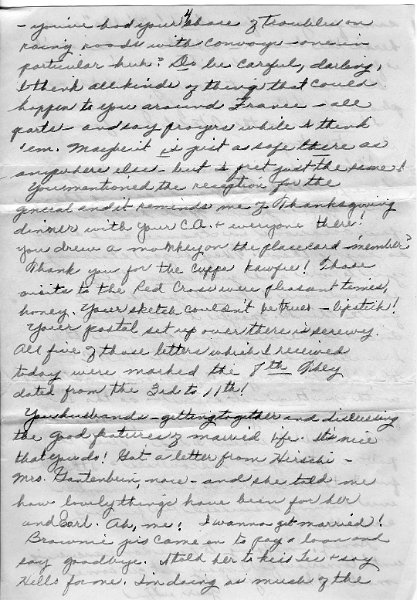 4
- you've had your share of troubles on
rainy roads with convoys - one in
particular huh? Do be careful, darling,
I think all kinds of things that could
happen to you around France - all
parts - and say prayers while I think
'em. Maybe it is just as safe there as
anywhere else - but I fret just the same!
You mentioned the reception for the
general and it reminds me of Thanksgiving
dinner with your C.A. + everyone there!
You drew a monkey on the placecard - member?
Thank you for the cuppa kawfee! Those
visits to the Red Cross were pleasant times,
honey. Your sketch couldn't be true - lipstick!
Your postal set up over there is screwy.
All five of those letters which I received
today were marked the 7th. They
dated from the 3rd to 11th!
You husbands - getting together and discussing
the good features of married life. It's nice
that you do! Got a letter from Hirschi -
Mrs. Gantenbein, now - and she told me
how lovely things have been for her
and Earl. Ah, me! I wanna get married!
Brownie jis came on to pay a loan and
say goodbye. I told her to kiss + say
Hello for me. I'm doing as much of the